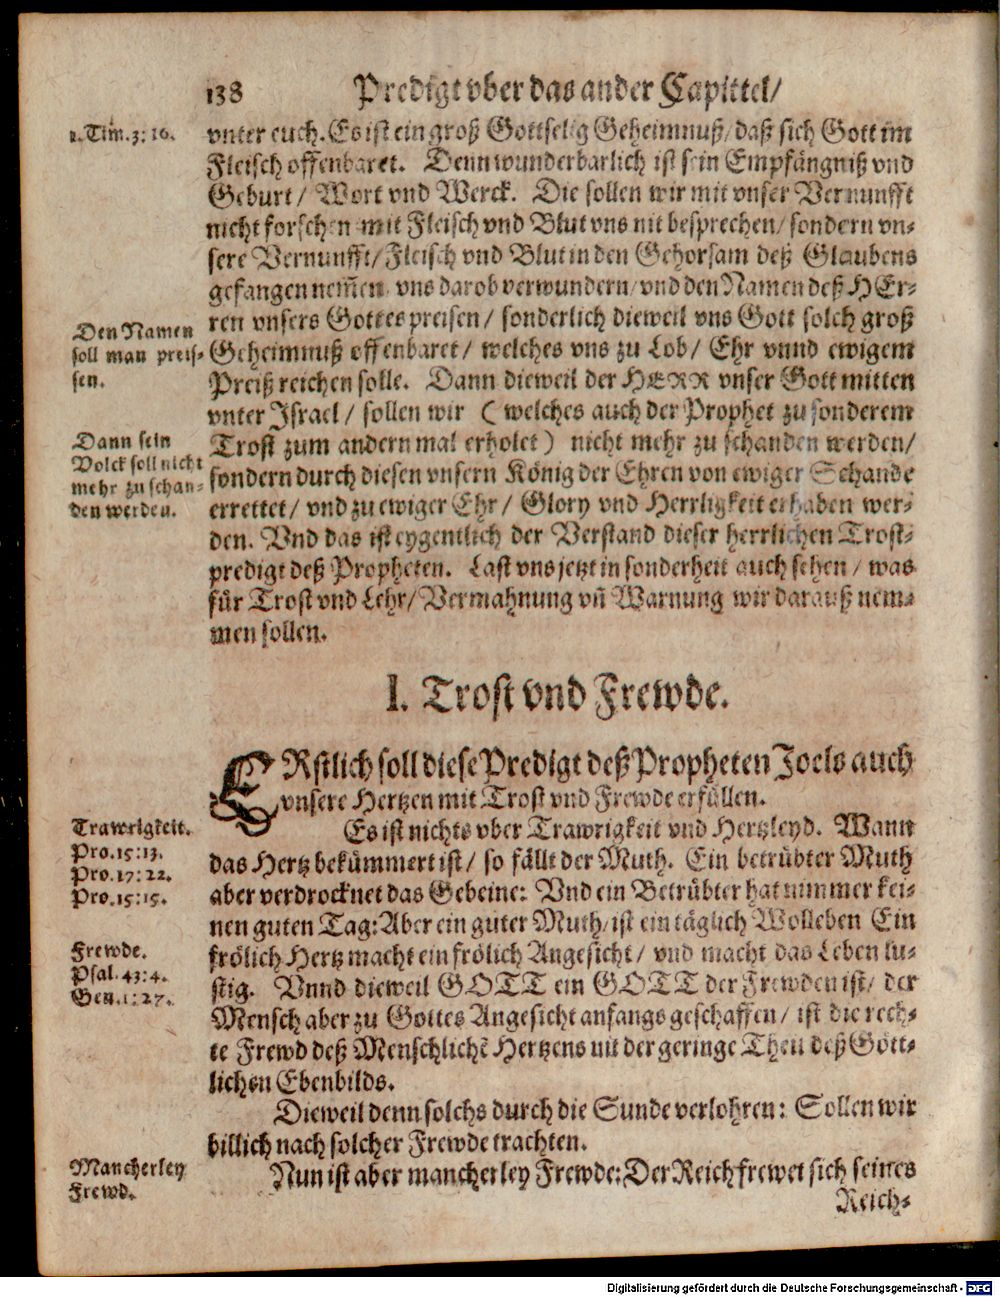 138 Predigt vber das ander Capittel/
1. Tim. 3: 16.
vnter euch. Es ist ein groß Gottselig Geheimnuß/ daß sich Gott im
Fleisch offenbaret. Denn wunderbarlich ist sein Empfängniß vnd
Geburt/ Wort vnd Werck. Die sollen wir mit vnser Vernunfft
nicht forschen mit Fleisch vnd Blut vns nit besprechen/ sondern vn-
sere Vernunfft/ Fleisch vnd Blut in den Gehorsam deß Glaubens
gefangen nem̃en vns darob verwundern/ vnd den Namen deß HEr-
ren vnsers Gottes preisen/ sonderlich dieweil vns Gott solch groß
Geheimnuß offenbaret/ welches vns zu Lob/ Ehr vnnd ewigem
Preiß reichen solle. Dann dieweil der HERR vnser Gott mitten
vnter Israel/ sollen wir (welches auch der Prophet zu sonderem
Trost zum andern mal erholet) nicht mehr zu schanden werden/
sondern durch diesen vnsern König der Ehren von ewiger Schande
errettet/ vnd zu ewiger Ehr/ Glory vnd Herrligkeit erhaben wer-
den. Vnd das ist eygentlich der Verstand dieser herrlichen Trost-
predigt deß Propheten. Last vns jetzt in sonderheit auch sehen/ was
für Trost vnd Lehr/ Vermahnung vñ Warnung wir darauß nem-
men sollen.
Den Namen
soll man preis-
sen.
Dann sein
Volck soll nicht
mehr zu schan-
den werden.
I. Trost vnd Frewde.
ERstlich soll diese Predigt deß Propheten Joels auch
vnsere Hertzen mit Trost vnd Frewde erfüllen.
Es ist nichts vber Trawrigkeit vnd Hertzleyd. Wann
das Hertz bekümmert ist/ so fällt der Muth. Ein betrübter Muth
aber verdrocknet das Gebeine: Vnd ein Betrübter hat nimmer kei-
nen guten Tag: Aber ein guter Muth/ ist ein täglich Wolleben Ein
frölich Hertz macht ein frölich Angesicht/ vnd macht das Leben lu-
stig. Vnnd dieweil GOTT ein GOTT der Frewden ist/ der
Mensch aber zu Gottes Angesicht anfangs geschaffen/ ist die rech-
te Frewd deß Menschlichẽ Hertzens nit der geringe Theil deß Gött-
lichen Ebenbilds.
Trawrigkeit.
Pro. 15: 13.
Pro. 17: 22.
Pro. 15: 15.
Frewde.
Psal. 43: 4.
Gen. 1: 27.
Dieweil denn solchs durch die Sunde verlohren: Sollen wir
billich nach solcher Frewde trachten.
Nun ist aber mancherley Frewde: Der Reich frewet sich seines
Mancherley
Frewd.
Reich-
Digitalisierung gefördert durch die Deutsche Forschungsgemeinschaft - DFG